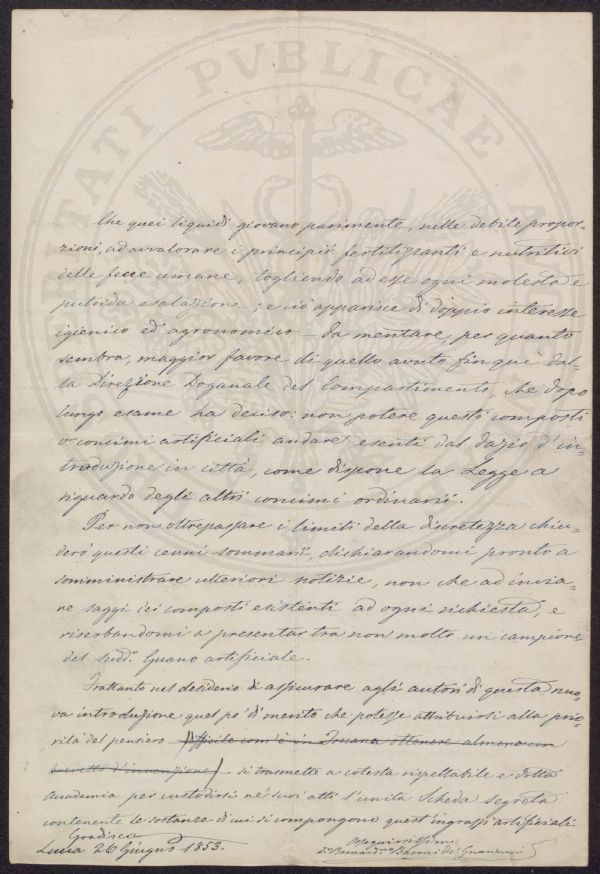 Che quei liquidi giovano parimente, nelle debite propor-
zioni, ad avvalorare i principii fertilizzanti e nutritivi
delle fecce umane, togliendo ad esse ogni molesta e
putrida esalazione; e ciò apparisce di doppio interesse
igienico ed agronomico da meritare, per quanto
sembra, maggior favore di quello avuto fin qui dal-
la Direzione Doganale del Compartimento, che dopo
lungo esame ha deciso: non potere questi composti
o concimi artificiali andare esenti dal dazio d'in-
troduzione in città, come dispone la Legge a
riguardo degli altri concimi ordinarii.
Per non oltrepassare i limiti della discretezza chiu-
derò questi cenni sommarii, dichiarandomi pronto a
somministrare ulteriori notizie, non che ad invia-
re saggi dei composti esistenti ad ogni richiesta, e
riserbandomi a presentar tra non molto un campione
del sudd.º Guano artificiale.
Frattanto nel desiderio di assicurare agli autori di questa nuo-
va introduzione quel po' di merito che potesse attribuirsi alla prio-
rità del pensiero (difficile com'è in Toscana ottenere almeno un
brevetto d'invenzione) si trasmette a cotesta rispettabile e dotta
Accademia per custodirsi ne' suoi atti l'unita Scheda segreta
contenente le sostanze di cui si compongono quest'ingrassi artificiali.
Gradisca
Lucca 26 Giugno 1853.
VRITATI PVBLICAE